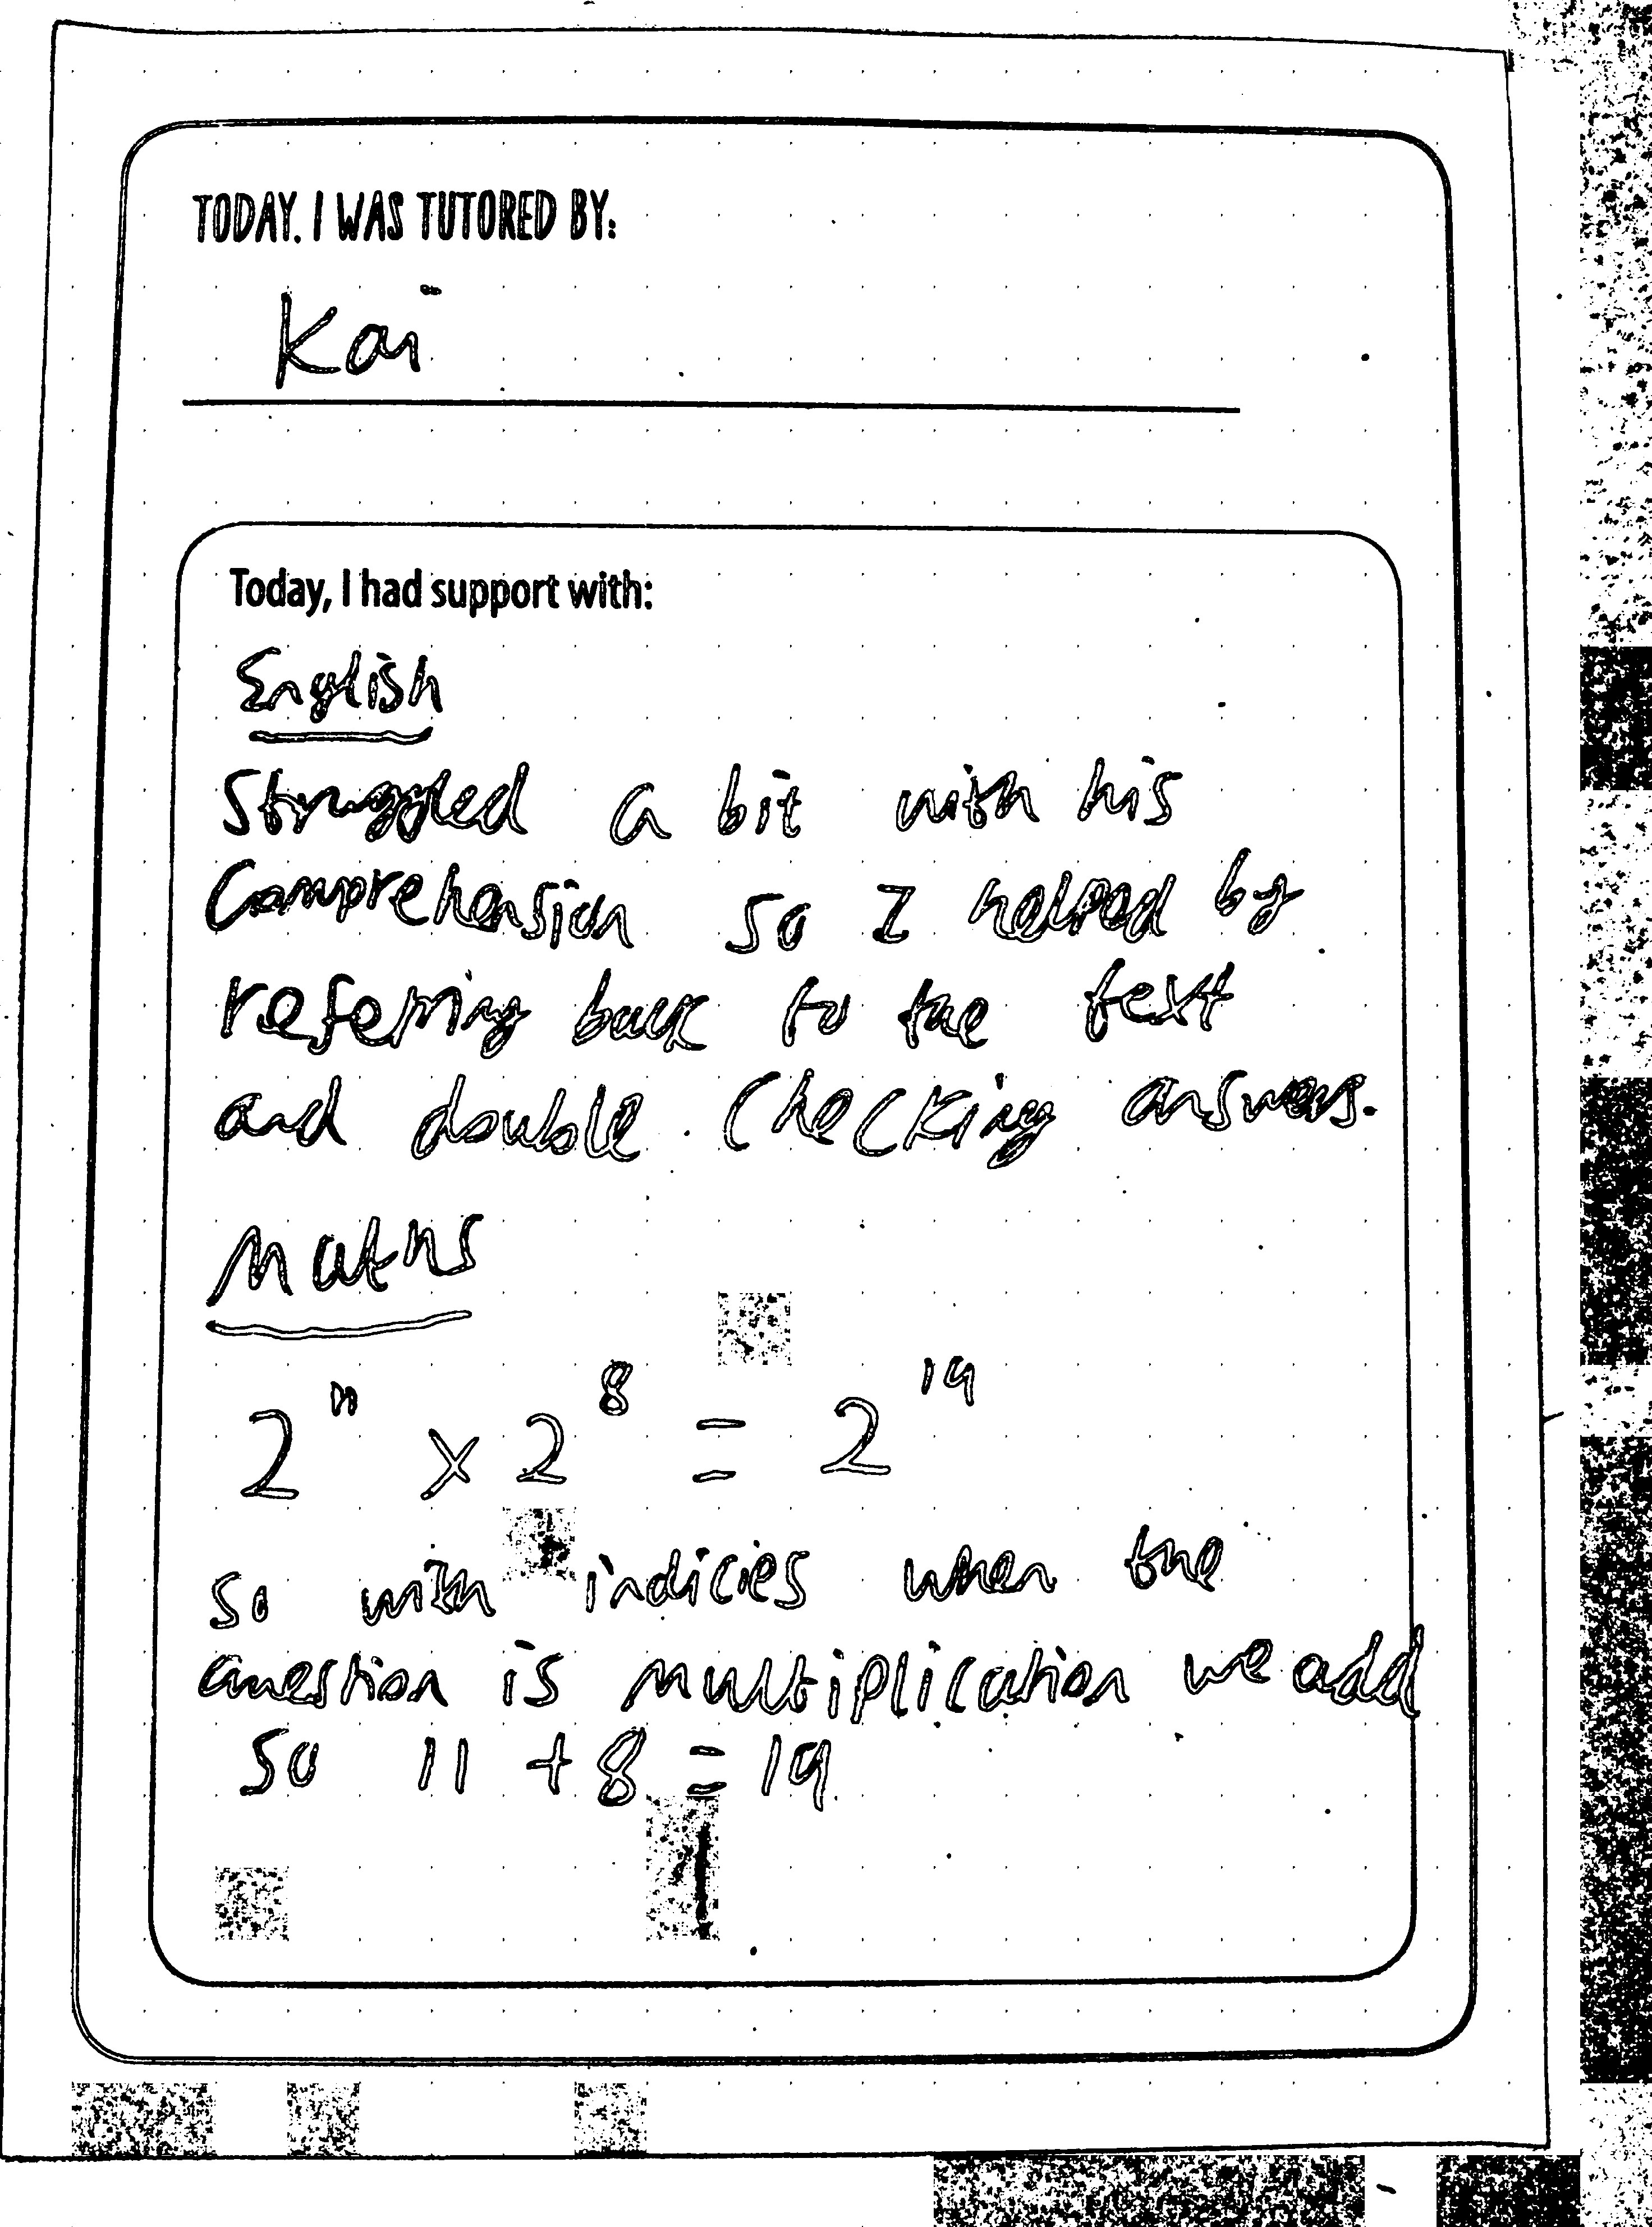 TODAY. I WAS TUTORED BY:
Kai
Today, I had support with:
English
Struggled a bit with his
Comprehension so I helped by
referring back to the text
and double checking answers.
Maths
2¹¹ × 2⁸ = 2¹⁹
so with indicies when the
question is multiplication we add
so 11 + 8 = 19